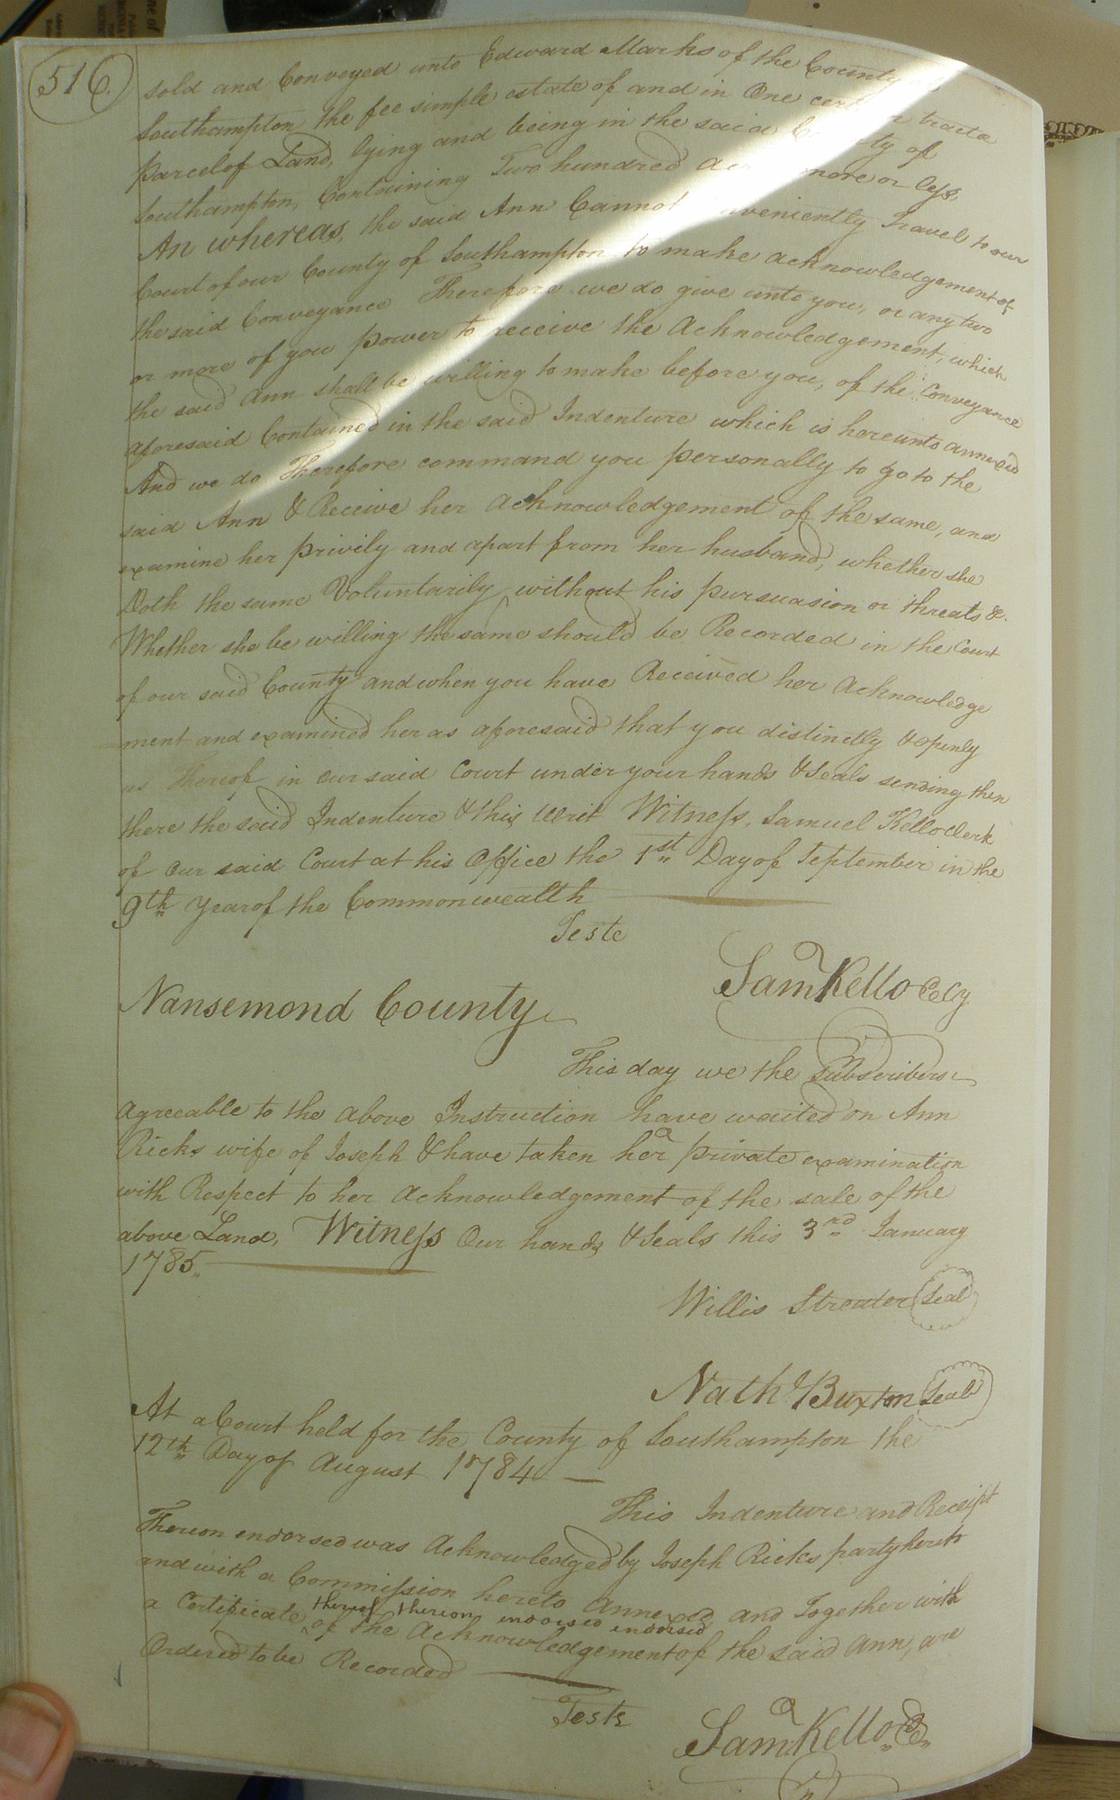 516.
sold and Conveyed unto Edward Marks of the County
Southampton the fee simple estate of and in One tract or
parcel of Land, lying and being in the said ty of
Southampton, Containing Two hundred more or less,
An whereas, the said Ann Cannot Conveniently Travel to our
Court of our County of Southampton to make acknowledgement of
the said Conveyance Therefore we do give unto you, or any two
or more of you power to receive the Acknowledgement, which
the said Ann shall be willing to make before you, of the Conveyance
aforesaid Contained in the said Indenture which is hereunto annexed
And we do Therefore command you personally to go to the
said Ann & Receive her acknowledgement of the same, and
examine her privily and apart from her husband, whether she
Doth the same Voluntarily without his pursuasion or threats &
Whether she be willing the same should be Recorded in the Court
of our said County and when you have Received her Acknowledge
ment and examined her as aforesaid that you distinctly & openly
us Thereof in our said Court under your hands & Seals sending then
there the said Indenture & this writ Witness, Samuel Kello Clerk
of our said Court at his Office the 1st Day of September in the
9th year of the Commonwealth
Teste
Saml Kello CoCy
Nansemond County
This day we the Subscribers
agreeable to the above Instruction have waited on Ann
Ricks wife of Joseph & have taken her private examination
with Respect to her Acknowledgement of the sale of the
above Land, Witness Our hands & Seals this 3rd January
1785
Willis Streater Seal
Nathl Buxton Seal
At a Court held for the County of Southampton the
12th Day of August 1784
This Indenture and Receipt
Thereon endorsed was Acknowledged by Joseph Ricks party hereto
and with a Commission hereto Annexed and Together with
a Certificate thereof thereon indorsed endorsed
of the Acknowledgement of the said Ann, are
Ordered to be Recorded
Teste
Saml Kello